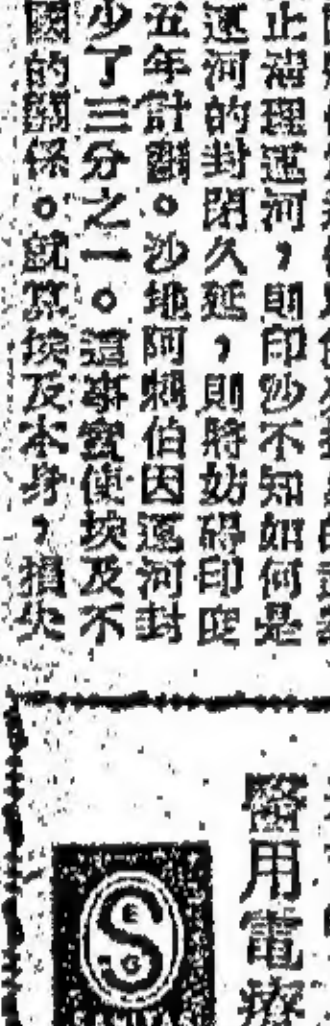 止清理運河,則印沙不知如何是
運河的封閉久延,則將妨碍印度
五年計劃。沙地阿剌伯因運河封
少了三分之一。這事實使埃及不
國的關係。就算埃及本身,損失
醫用電療
S
E
G